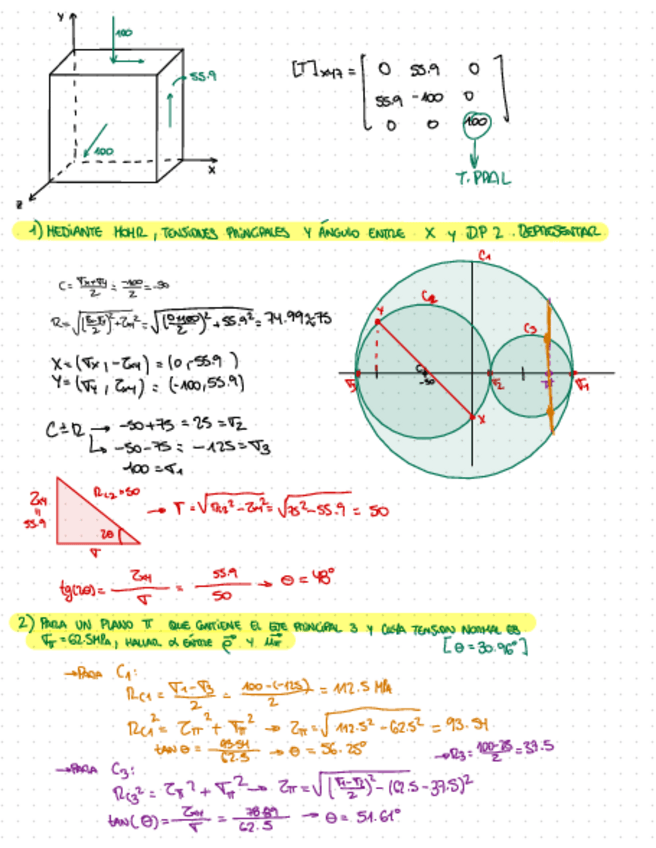 Y
100
55.9
100
X
Z
[T]xyz = [ 0 55.9 0
55.9 -100 0
0 0 100 ]
T. PRAL
1) MEDIANTE MOHR, TENSIONES PRINCIPALES Y ÁNGULO ENTRE X Y DP2. REPRESENTAR
C = σx+σy/2 = -100/2 = -50
R = √((σx-σy/2)² + τxy²) = √((0+100/2)² + 55.9²) = 74.99 ≈ 75
X = (σx, -τxy) = (0, -55.9)
Y = (σy, τxy) = (-100, 55.9)
C ± R → -50+75 = 25 = σ2
↳ -50-75 = -125 = σ3
100 = σ1
C1
C2
C3
Y
C
-50
X
σ3
σ2
σ1
τxy
=
55.9
2θ
σ
→ σ = √(Rc2² - τxy²) = √(75² - 55.9) = 50
tg(2θ) = τxy/σ = 55.9/50 → θ = 48°
2) PARA UN PLANO π QUE CONTIENE EL EJE PRINCIPAL 3 Y CUYA TENSION NORMAL ES
σπ = 62.5MPa, HALLAR α ENTRE
[θ = 30.96°]
→ PARA C1:
Rc1 = σ1-σ3/2 = 100-(-125)/2 = 112.5 MPa
Rc1² = τπ² + σπ² → τπ = √(112.5² - 62.5²) = 93.54
tan θ = 93.54/62.5 → θ = 56.25°
→ R3 = 100-25/2 = 37.5
→ PARA C3:
Rc3² = τπ² + σπ² → τπ = √((σ1-σ2/2)² - (62.5-37.5)²
tan(θ) = τxy/σ = 78.89/62.5 → θ = 51.61°